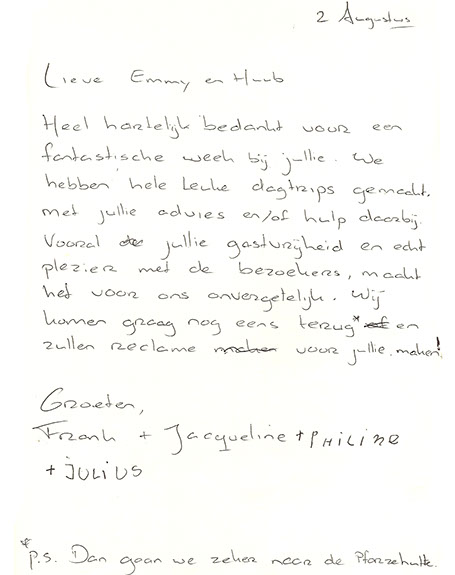 2 Augustus
Lieve Emmy en Huub
Heel hartelijk bedankt voor een
fantastische week bij jullie. We
hebben hele leuke dagtrips gemaakt.
met jullie advies en/of hulp daarbij.
Vooral de jullie gastvrijheid en echt
plezier met de bezoekers, maakt
het voor ons onvergetelijk. Wij
komen graag nog eens terug* of en
zullen reclame maken voor jullie maken!
Groeten,
Frank + Jacqueline + PHILINE
+ JULIUS
* p.s. Dan gaan we zeker naar de Pforzehutte.